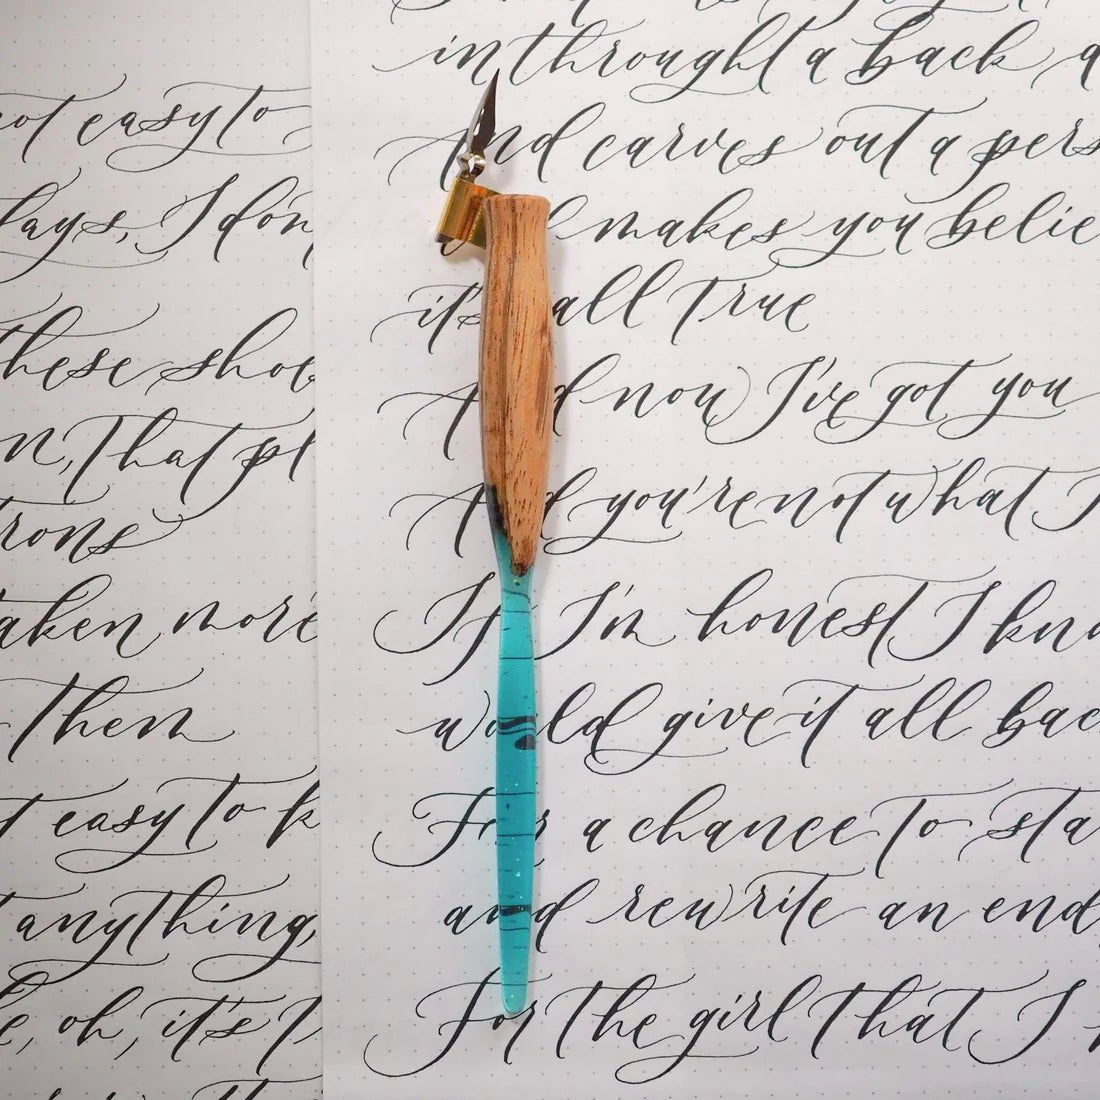 not easy to
days, I don
these shoe
that pl
taken more
them
easy to k
anything,
oh, it's
in throught a back a
And carves out a pers
makes you belie
it's all true
And now I've got you
And you're not what I
If I'm honest I kno
would give it all bac
For a chance to sta
and rewrite an end
For the girl that I